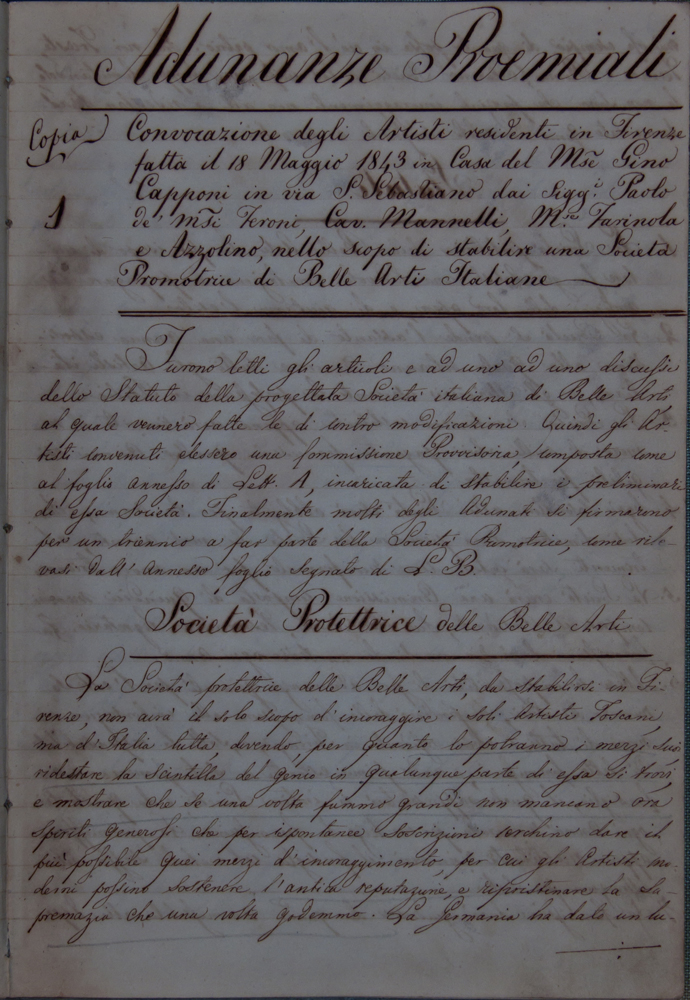 Adunanze Proemiali
Copia
Convocazione degli Artisti residenti in Firenze
fatta il 18 Maggio 1843 in Casa del Mse Gino
Capponi in via S. Sebastiano dai Sigg.i Paolo
1
de' Msi Feroni, Cav. Mannelli, M.se Farinola
e Azzolino, nello scopo di stabilire una Società
Promotrice di Belle Arti Italiane
Furono letti gli articoli e ad uno ad uno discussi
dello Statuto della progettata Società italiana di Belle Arti
al quale vennero fatte le di contro modificazioni. Quindi gli Ar-
tisti convenuti elessero una Commissione Provvisoria, composta come
al foglio annesso di Lett. 1, incaricata di stabilire i preliminari
di essa Società. Finalmente molti degli Adunati si firmarono
per un triennio a far parte della Società Promotrice, come rile-
vasi dall' annesso foglio segnato di L. B.
Società Protettrice delle Belle Arti
La Società protettrice delle Belle Arti, da stabilirsi in Fi-
renze, non avrà il solo scopo d'incoraggire i soli Artisti Toscani,
ma d'Italia tutta, dovendo, per quanto lo potranno i mezzi suoi,
ridestare la scintilla del genio in qualunque parte di essa si trovi,
e mostrare che se una volta fummo grandi non mancano ora
spiriti generosi che per ispontanee soscrizioni cerchino dare il
più possibile quei mezzi d'incoraggimento, per cui gli Artisti mo-
derni possino sostenere l'antica reputazione, e ripristinare la su-
premazia che una volta godemmo. La Germania ha dato un lu-